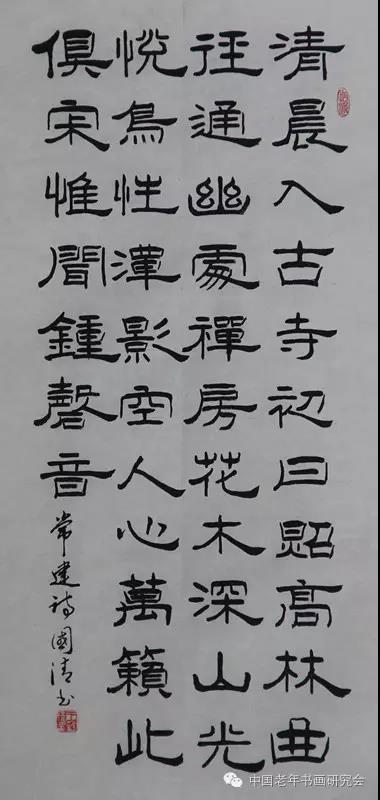 清晨入古寺初日照高林曲
径通幽處禪房花木深山光
悦鳥性潭影空人心萬籟此
俱寂惟聞鍾磬音
常建詩國清书
中国老年书画研究会